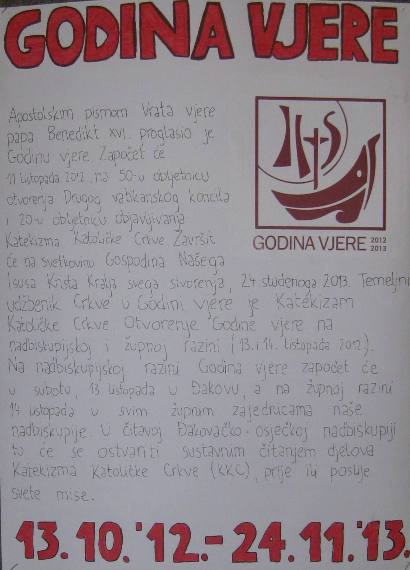 GODINA VJERE
Apostolskim pismom Vrata vjere
papa Benedikt XVI. proglasio je
Godinu vjere. Započet će
11 listopada 2012., na 50-u obljetnicu
otvorenja Drugog vatikanskog koncila
i 20-u obljetnicu objavljivanja
Katekizma Katoličke Crkve. Završit
će na svetkovinu Gospodina Našega
Isusa Krista Kralja svega stvorenja, 24. studenoga 2013. Temeljni
udžbenik Crkve u Godini vjere je Katekizam
Katoličke Crkve. Otvorenje Godine vjere na
nadbiskupijskoj i župnoj razini (13. i 14. listopada 2012.).
Na nadbiskupijskoj razini Godina vjere započet će
u subotu, 13. listopada u Đakovu, a na župnoj razini
14. listopada u svim župnim zajednicama naše
nadbiskupije. U čitavoj Đakovačko-osječkoj nadbiskupiji
to će se ostvariti sustavnim čitanjem djelova
Katekizma Katoličke Crkve (KKC), prije ili poslije
svete mise.
IHS
GODINA VJERE 2012 2013
13.10.'12.-24.11.'13.